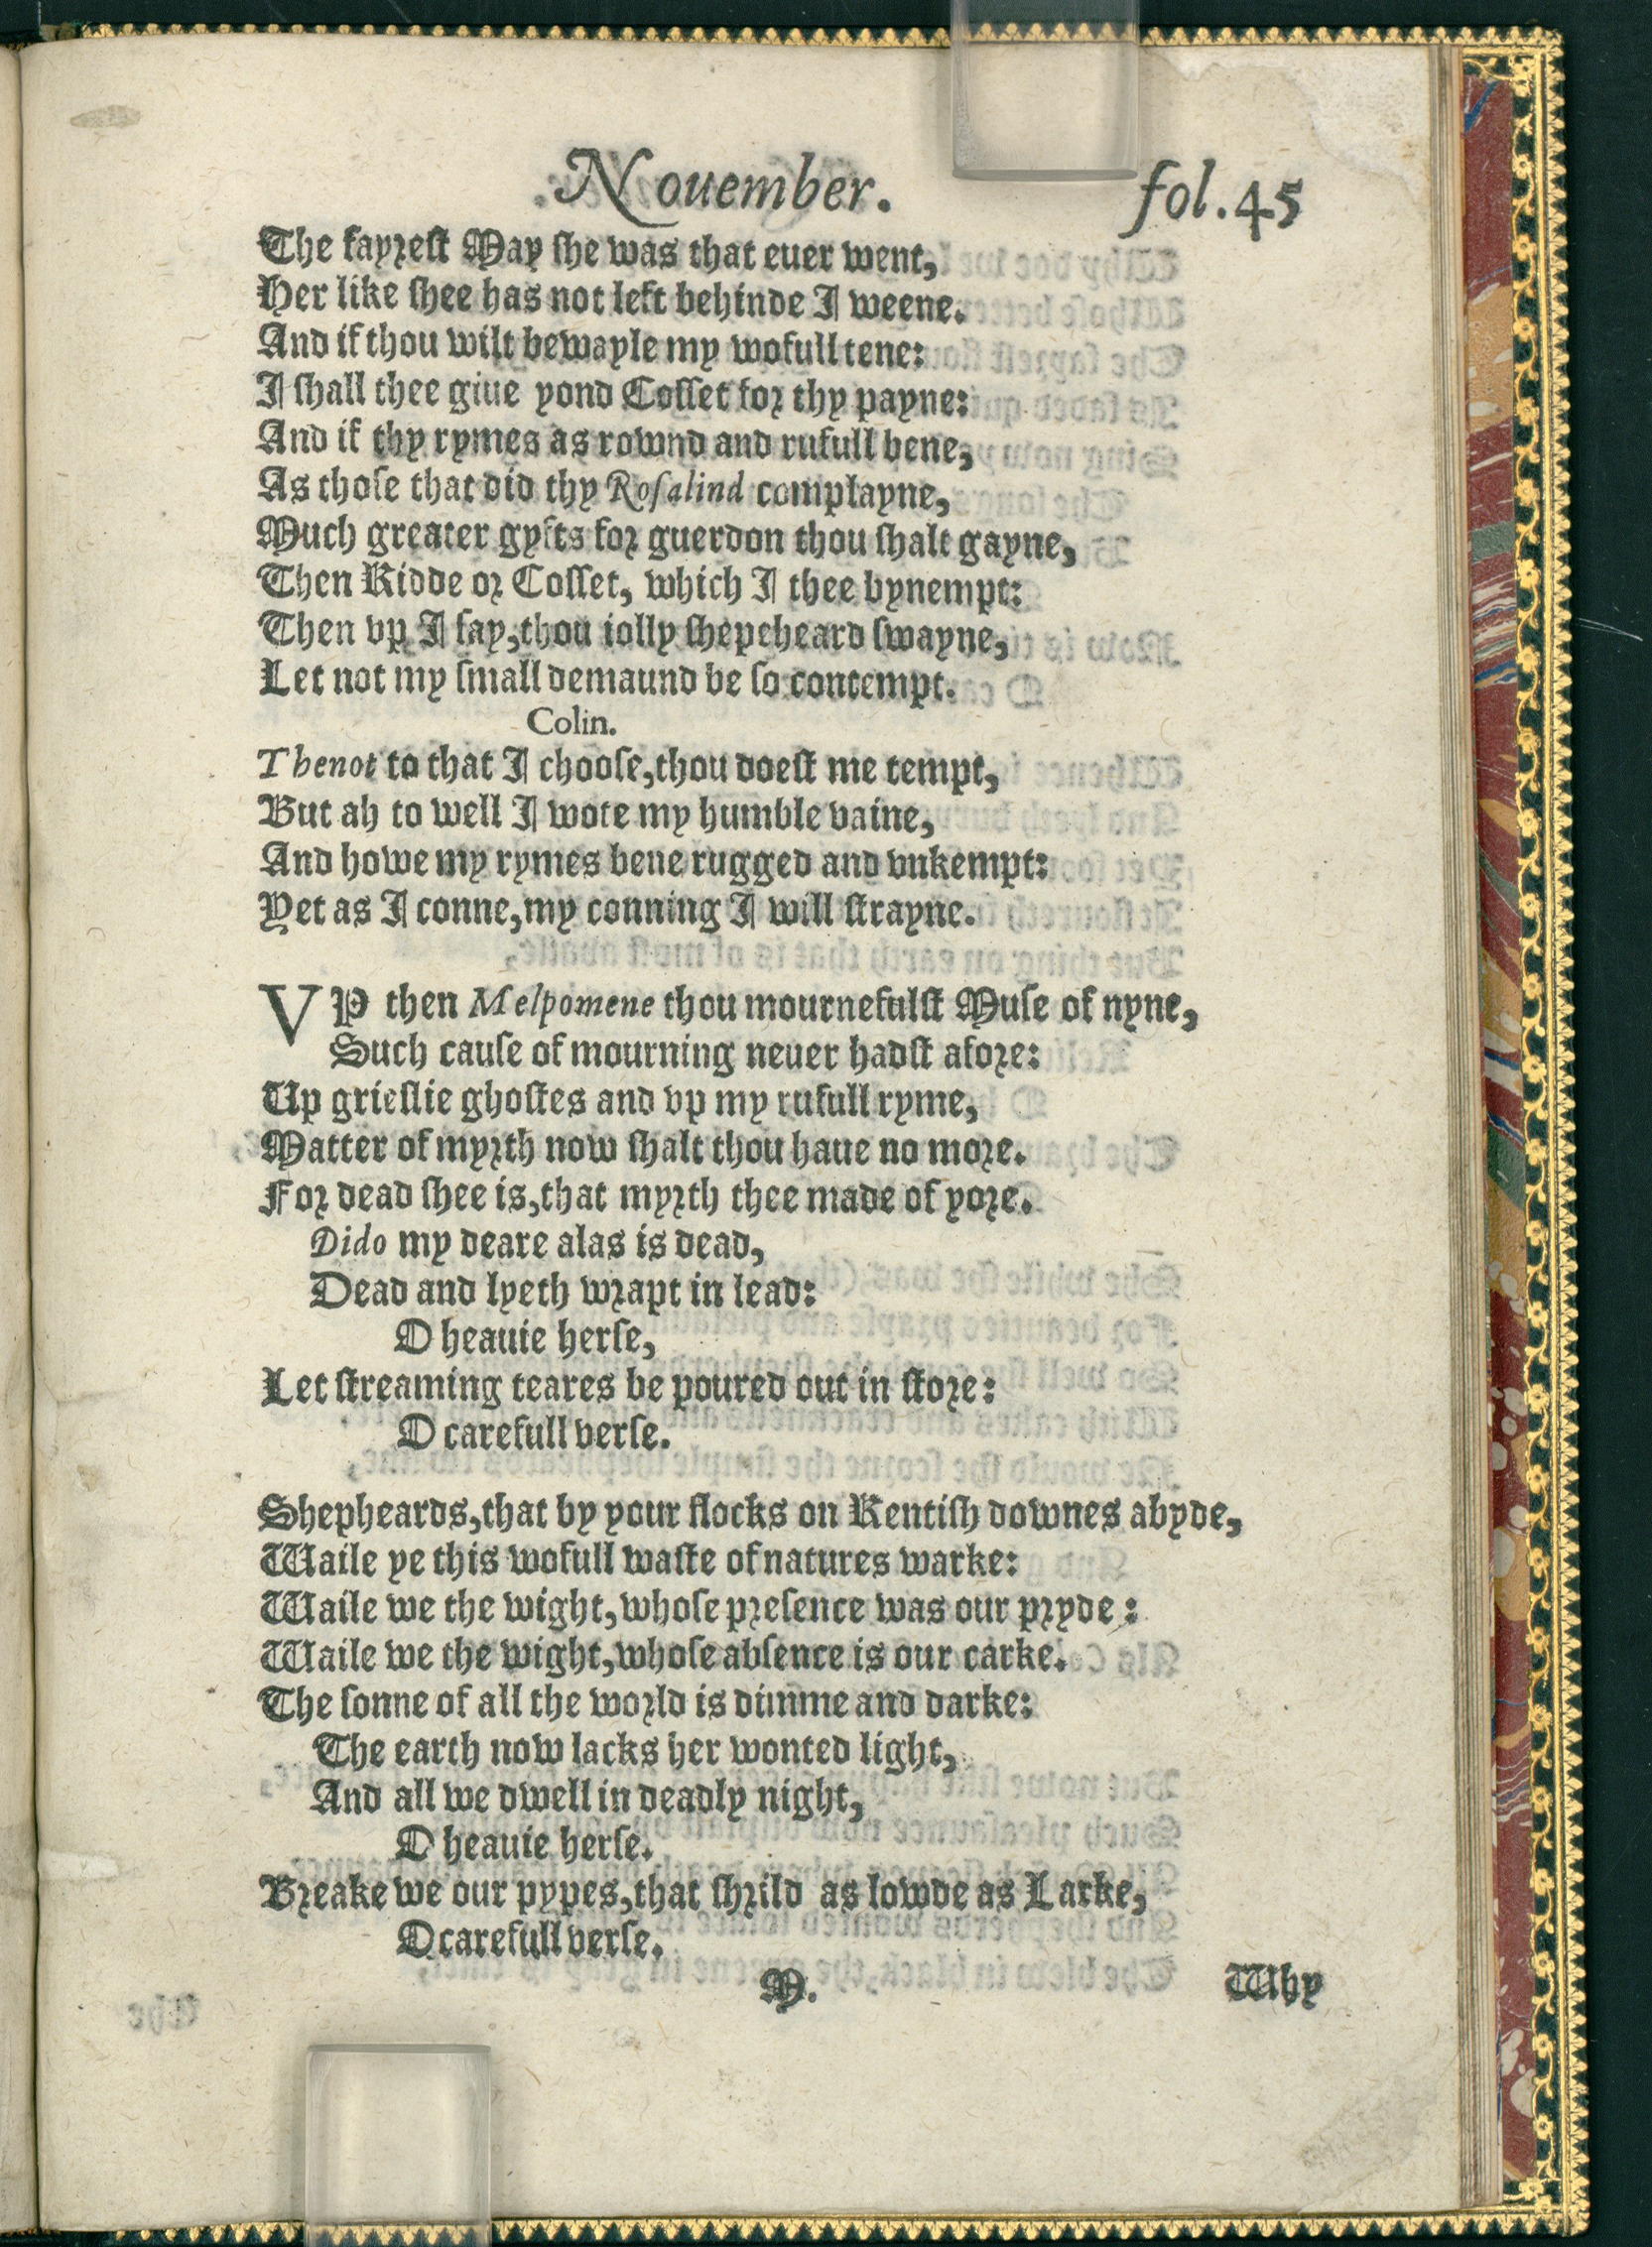 Nouember. fol.45
The fayrest May she was that euer went,
Her like shee has not left behinde I weene.
And if thou wilt bewayle my wofull tene:
I shall thee giue yond Cosset for thy payne:
And if thy rymes as rownd and rufull bene,
As those that did thy Rosalind complayne,
Much greater gyfts for guerdon thou shalt gayne,
Then Kidde or Cosset, which I thee bynempt:
Then vp I say, thou iolly shepeheard swayne,
Let not my small demaund be so contempt.
Colin.
Thenot to that I choose, thou doest me tempt,
But ah to well I wote my humble vaine,
And howe my rymes bene rugged and vnkempt:
Yet as I conne, my conning I will strayne.
VP then Melpomene thou mournefulst Muse of nyne,
Such cause of mourning neuer hadst afore:
Up grieslie ghostes and vp my rufull ryme,
Matter of myrth now shalt thou haue no more.
For dead shee is, that myrth thee made of yore.
Dido my deare alas is dead,
Dead and lyeth wrapt in lead:
O heauie herse,
Let streaming teares be poured out in store:
O carefull verse.
Shepheards, that by your flocks on Kentish downes abyde,
Waile ye this wofull waste of natures warke:
Waile we the wight, whose presence was our pryde:
Waile we the wight, whose absence is our carke.
The sonne of all the world is dimme and darke:
The earth now lacks her wonted light,
And all we dwell in deadly night,
O heauie herse.
Breake we our pypes, that shrild as lowde as Larke,
O carefull verse.
M. Why